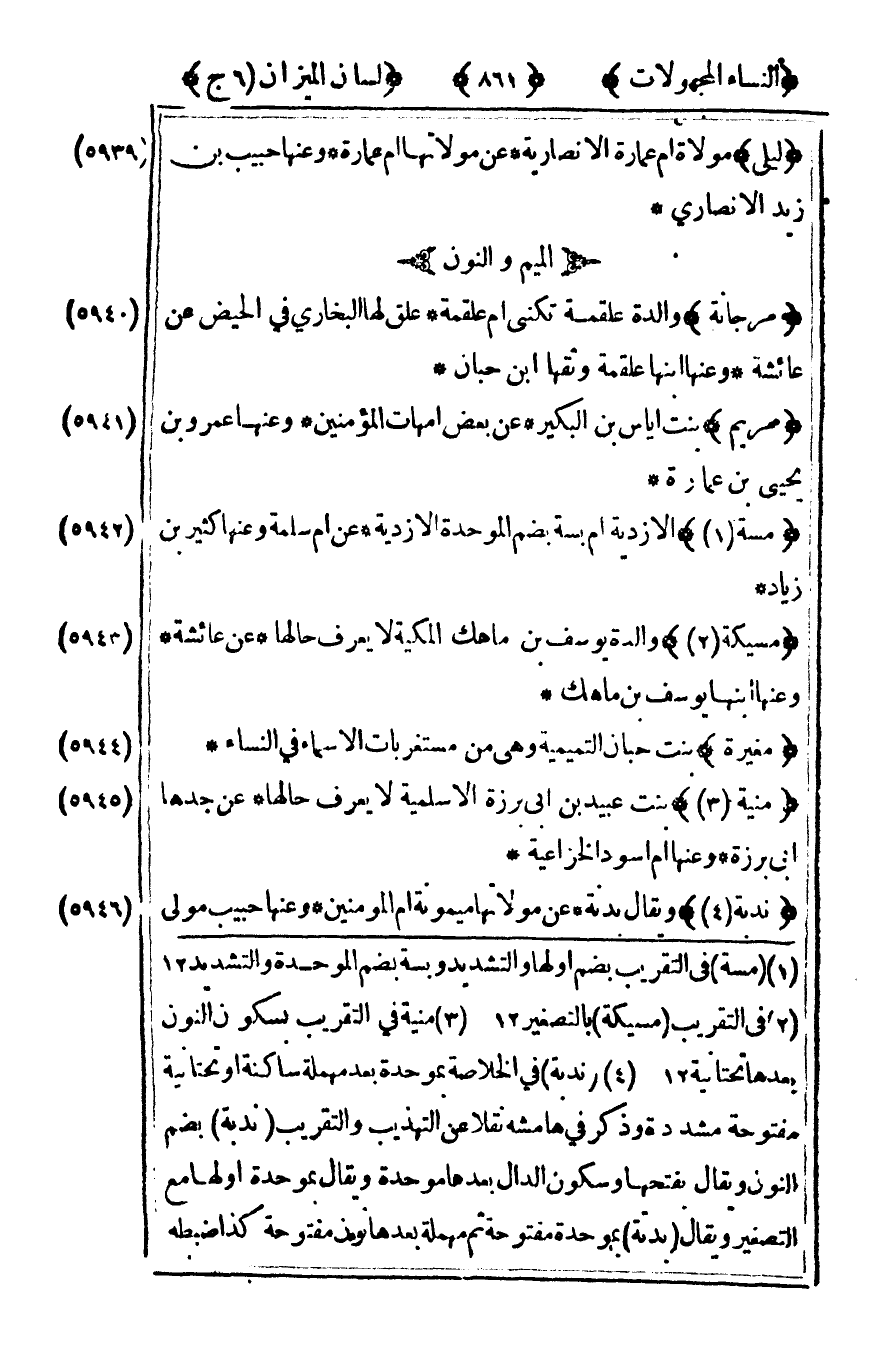 ﴿النساء المجهولات﴾ ﴿٨٦١﴾ ﴿لسان الميزان (٦ ج)﴾
﴿ليلى﴾ مولاة ام عمارة الانصارية * عن مولاتها ام عمارة * وعنها حبيب بن (٥٩٣٩)
زيد الانصاري *
الميم و النون
﴿مرجانة﴾ والدة علقمة تكنى ام علقمة * علق لها البخاري في الحيض عن (٥٩٤٠)
عائشة * وعنها ابنها علقمة وثقها ابن حبان *
﴿مريم﴾ بنت اياس بن البكير * عن بعض امهات المؤمنين * وعنها عمرو بن (٥٩٤١)
يحيى بن عمارة *
﴿مسة (١)﴾ الازدية ام بسة بضم الموحدة الازدية * عن ام سلمة وعنها كثير بن (٥٩٤٢)
زياد *
﴿مسيكة (٢)﴾ والدة يوسف بن ماهك المكية لا يعرف حالها * عن عائشة * (٥٩٤٣)
وعنها ابنها يوسف بن ماهك *
﴿مغيرة﴾ بنت حبان التميمية وهى من مستغربات الاسماء في النساء * (٥٩٤٤)
﴿منية (٣)﴾ بنت عبيد بن ابى برزة الاسلمية لا يعرف حالها * عن جدها (٥٩٤٥)
ابى برزة * وعنها ام اسود الخزاعية *
﴿ندبة (٤)﴾ ويقال بدنة * عن مولاتها ميمونة ام المومنين * وعنها حبيب مولى (٥٩٤٦)
(١) (مسة) فى التقريب بضم اولها والتشديد وبسة بضم الموحدة والتشديد ١٢
(٢) فى التقريب (مسيكة) بالتصغير ١٢ (٣) منية في التقريب بسكون النون
بعدها تحتانية ١٢ (٤) (ندبة) في الخلاصة بموحدة بعد مهملة ساكنة او تحتانية
مفتوحة مشددة وذكر في هامشه نقلا عن التهذيب والتقريب (ندبة) بضم
النون ويقال بفتحها وسكون الدال بعدها موحدة ويقال بموحدة اولها مع
التصغير ويقال (بدنة) بموحدة مفتوحة ثم مهملة بعدها نون مفتوحة كذا ضبطه